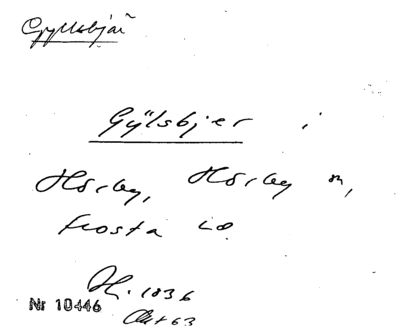 Gyllsbjär
Gÿlsbjer i
Hörby, Hörby sn,
Frosta hd
H. 1836
Akt 63
Nr 10446